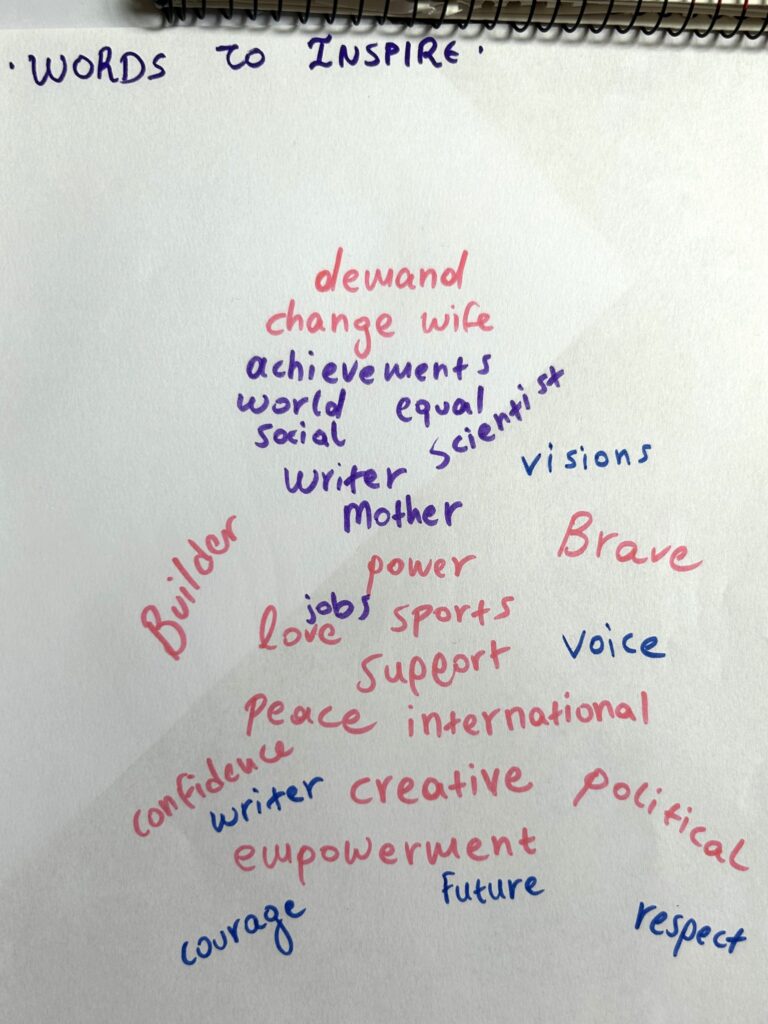 . WORDS TO INSPIRE .
demand
change wife
achievements
world equal
social scientist
visions
writer
Mother
Builder
Brave
power
jobs
love sports
voice
support
peace international
confidence
writer creative political
empowerment
Future
courage
respect